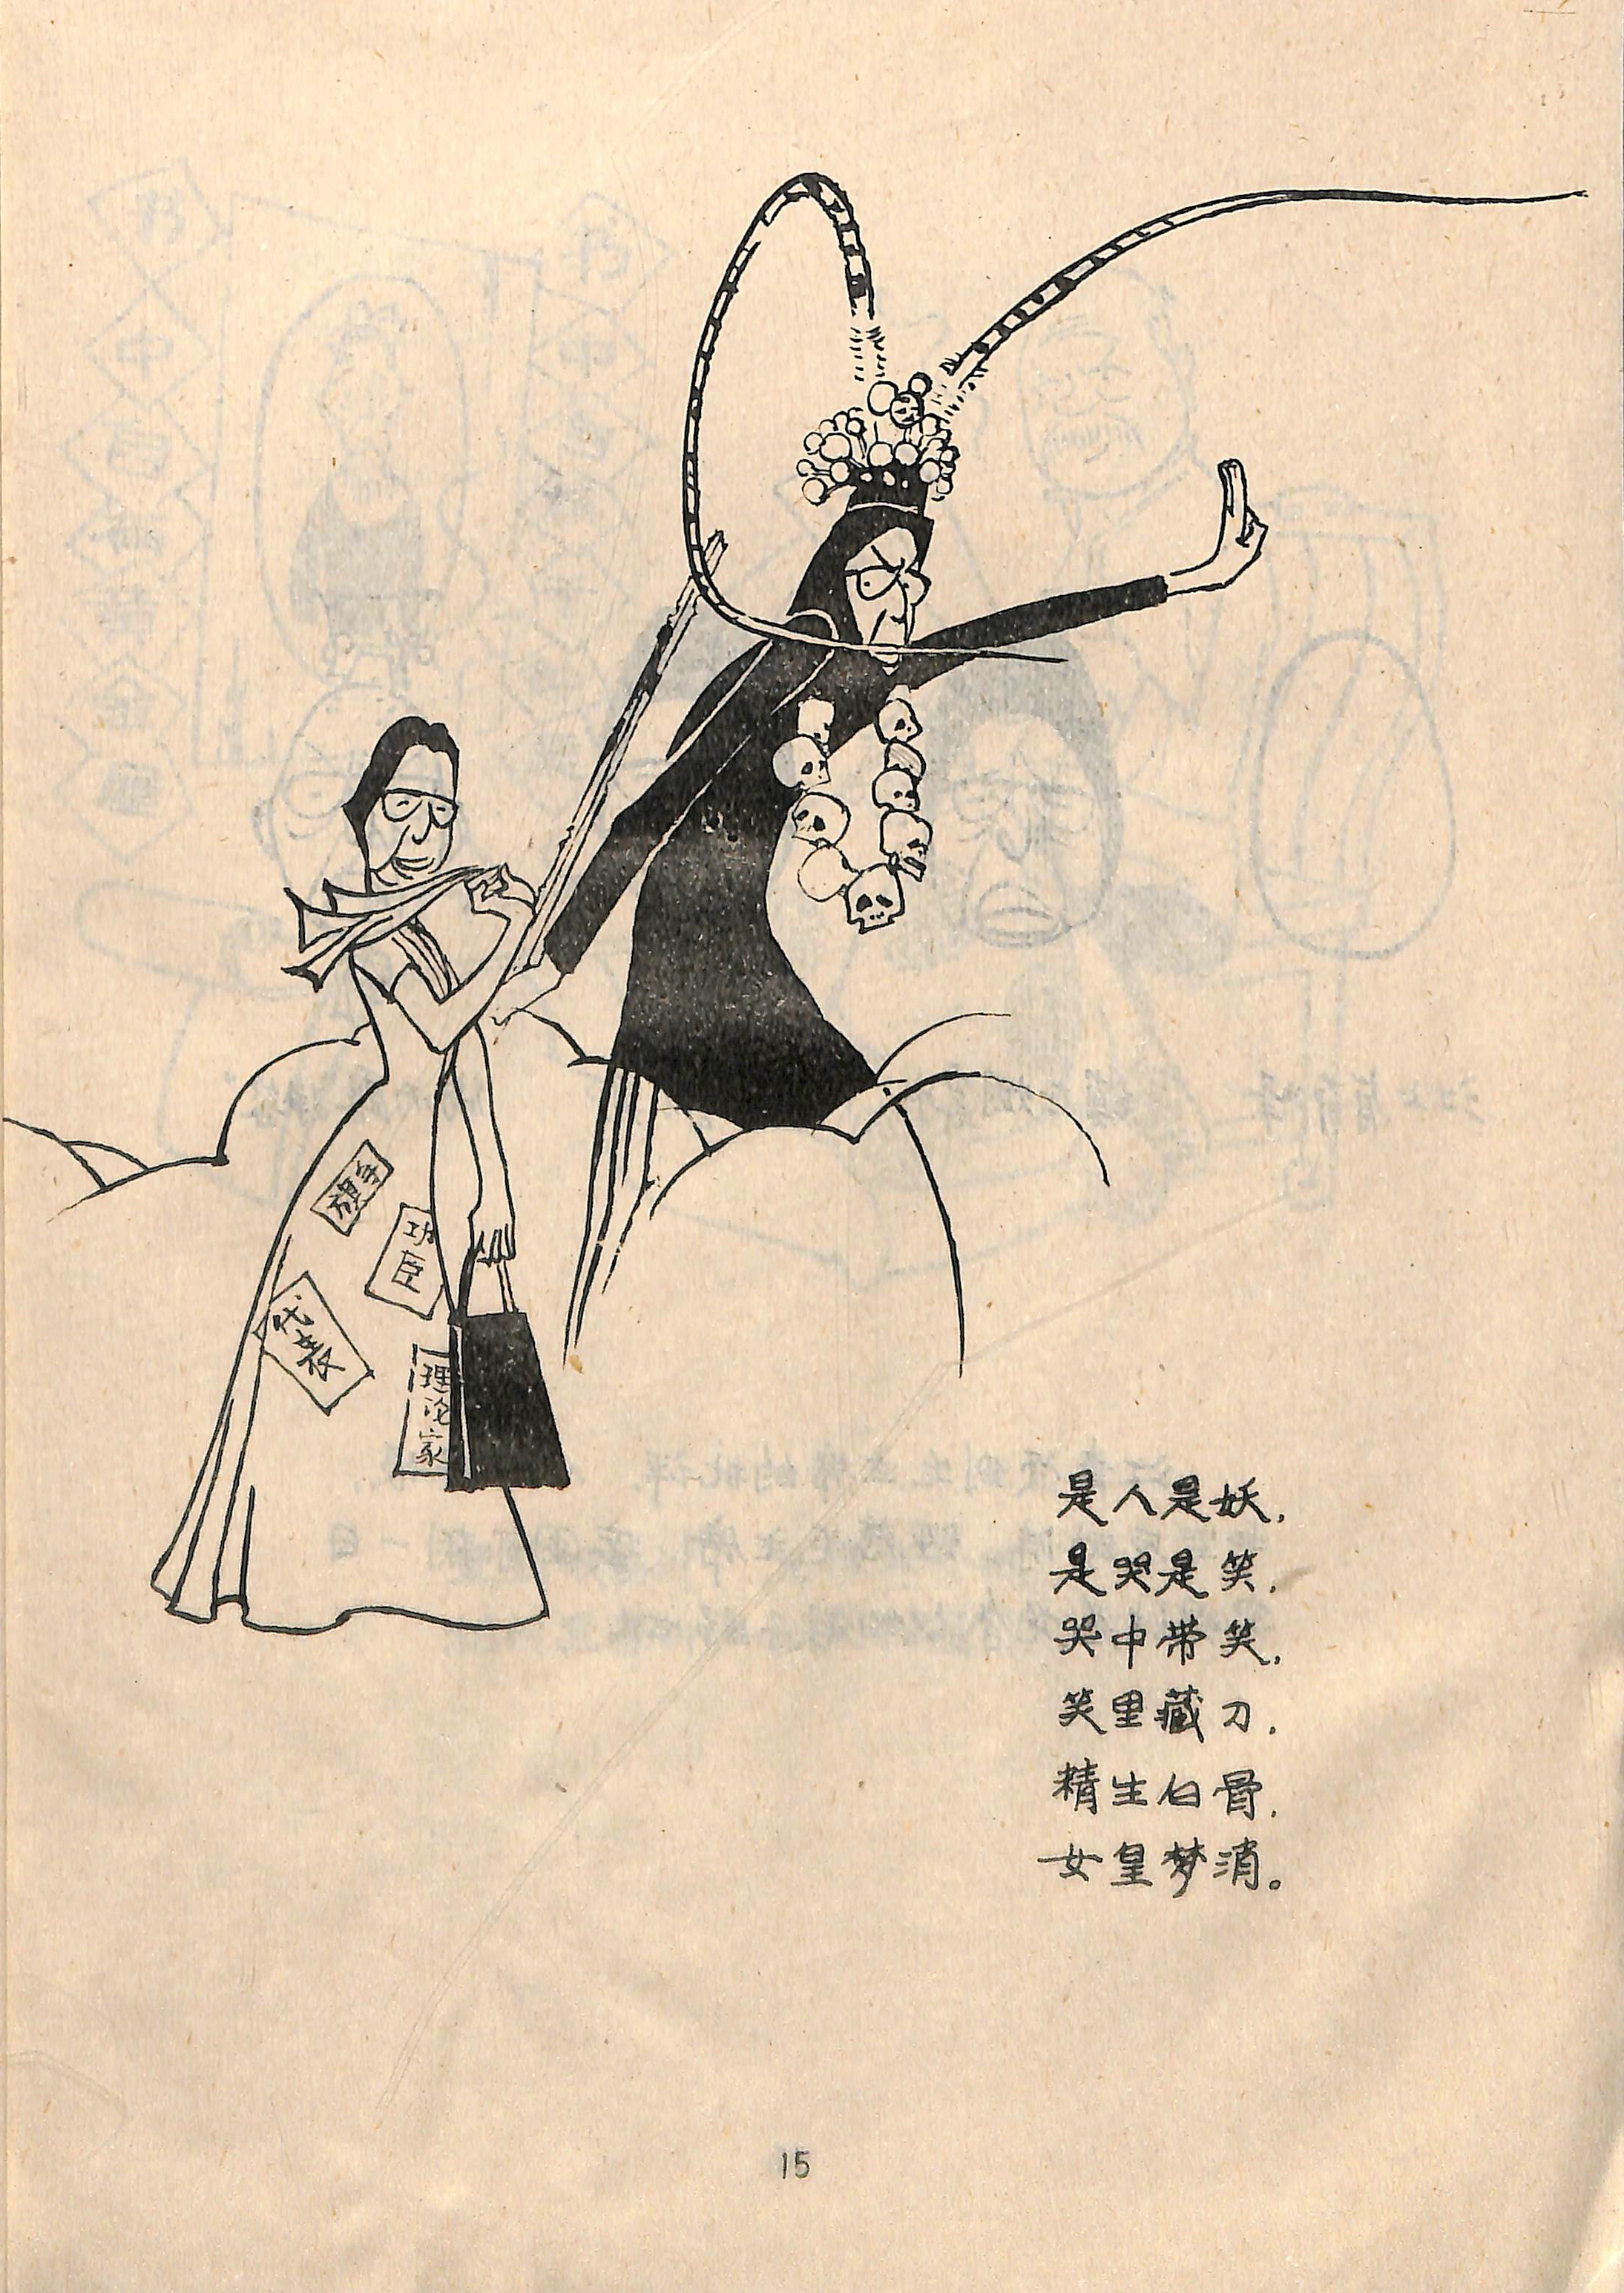 旗手
功臣
代表
理论家
是人是妖，
是哭是笑，
哭中带笑，
笑里藏刀，
精生白骨，
女皇梦消。
15